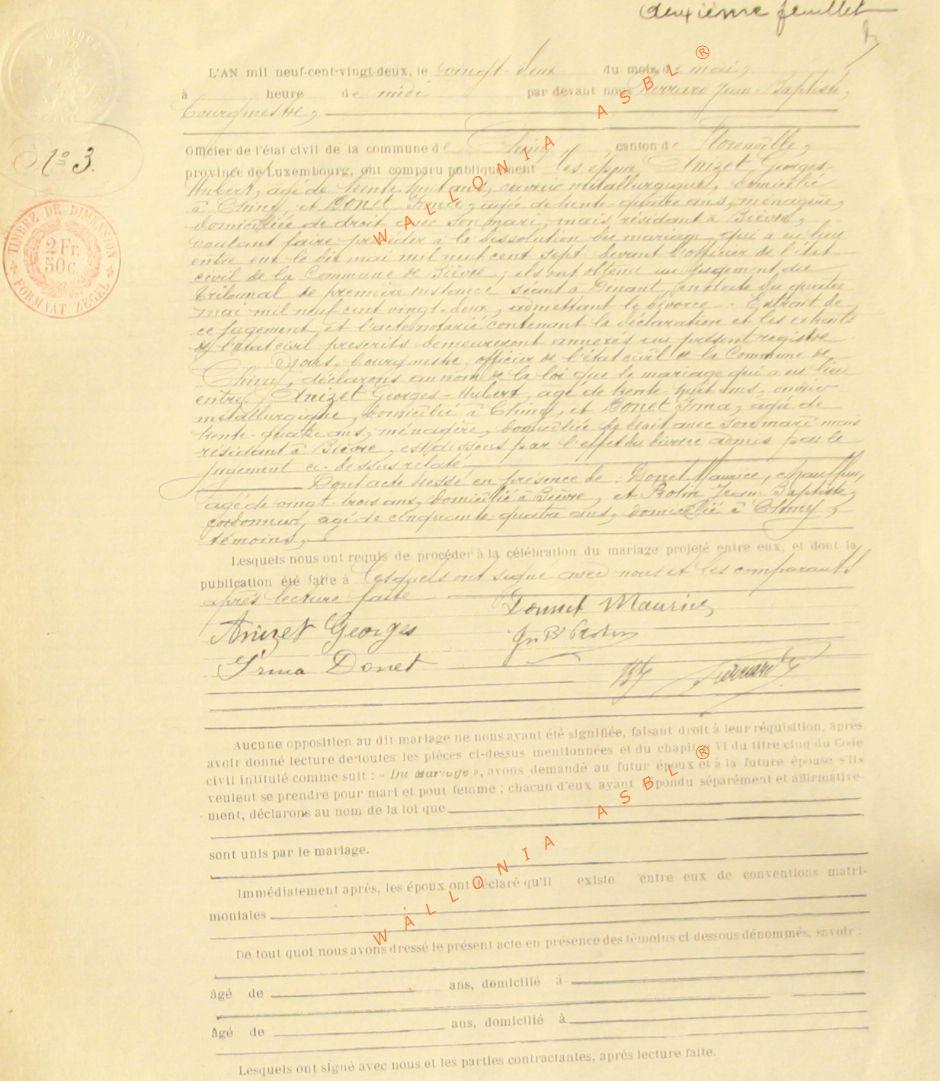 deuxième feuillet
L'AN mil neuf-cent-vingt-deux, le vingt-deux du mois de mai,
à heure de midi par devant nous Jean-Baptiste,
bourgmestre,
Officier de l'état civil de la commune de Chiny, canton de Florenville,
N° 3.
province de Luxembourg, ont comparu publiquement les époux Anizet, Georges-
Hubert, âgé de trente-huit ans, ouvrier métallurgique, domicilié
à Chiny, et Donet Irma, âgée de trente-quatre ans, ménagère,
domiciliée de droit avec son mari, mais résidant à Bièvre,
voulant faire procéder à la dissolution du mariage qui a eu lieu
entre eux le dix mai mil neuf cent sept devant l'officier de l'état
civil de la Commune de Bièvre; ils ont obtenu un jugement du
tribunal de première instance séant à Dinant, en date du quatre
mai mil neuf cent vingt-deux, admettant le divorce. Extrait de
ce jugement et l'acte notarié contenant la déclaration et les extraits
de l'état civil prescrits demeureront annexés au présent registre
Nous, bourgmestre, officier de l'état civil de la Commune de
Chiny, déclarons au nom de la loi que le mariage qui a eu lieu
entre Anizet Georges-Hubert, âgé de trente-huit ans, ouvrier
métallurgique, domicilié à Chiny, et Donet Irma, âgée de
trente-quatre ans, ménagère, domiciliée de droit avec son mari mais
résidant à Bièvre, est dissous par l'effet du divorce admis par le
jugement ci-dessus relaté
Dont acte dressé en présence de Donet Maurice, chauffeur,
âgé de vingt-trois ans, domicilié à Bièvre, et Jean Baptiste,
cordonnier, âgé de cinquante-quatre ans, domicilié à Chiny,
témoins,
TIMBRE DE DIMENSION
2 Fr.
50c.
FORMAAT ZEGEL
Lesquels nous ont requis de procéder à la célébration du mariage projeté entre eux, et dont la
publication été faite à Lesquels ont signé avec nous et les comparants
après lecture faite
Donnet Maurice
Anizet Georges
Irma Donet
Aucune opposition au dit mariage ne nous ayant été signifiée, faisant droit à leur réquisition, après
avoir donné lecture de toutes les pièces ci-dessus mentionnées et du chapitre VI du titre cinq du Code
civil intitulé comme suit : « Du Mariage », avons demandé au futur époux et à la future épouse s'ils
veulent se prendre pour mari et pour femme ; chacun d'eux ayant répondu séparément et affirmative-
ment, déclarons au nom de la loi que
sont unis par le mariage.
Immédiatement après, les époux ont déclaré qu'il existe entre eux de conventions matri-
moniales
De tout quoi nous avons dressé le présent acte en présence des témoins ci-dessous dénommés, savoir :
âgé de ans, domicilié à
âgé de ans, domicilié à
Lesquels ont signé avec nous et les parties contractantes, après lecture faite.
WALLONIA ASBL ®
WALLONIA ASBL ®